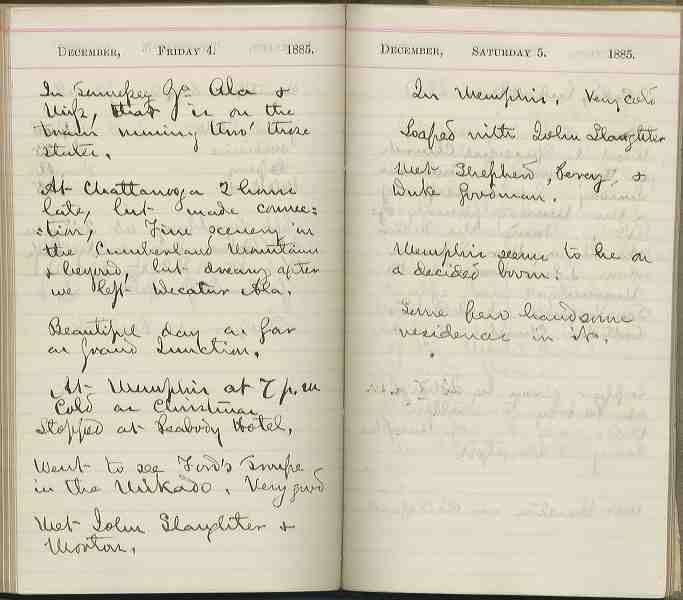 DECEMBER, FRIDAY 4. 1885.
In Tennessey Ga Ala &
Miss, that is on the
train running thro' these
states.
At Chattanooga 2 hours
late, but made connec=
=tion, Fine scenery in
the Cumberland Mountains
& beyond, but dreary after
we left Decatur Ala.
Beautiful day as far
as Grand Junction.
At Memphis at 7 p.m
Cold as Christmas
Stopped at Peabody Hotel.
Went to see Ford's troupe
in the Mikado. Very good
Met John Slaughter &
Morton.
DECEMBER, SATURDAY 5. 1885.
In Memphis. Very cold
Loafed with John Slaughter
Met Shepherd, &
Duke Goodman.
Memphis seems to be on
a decided boom.
Some few handsome
residences in it.